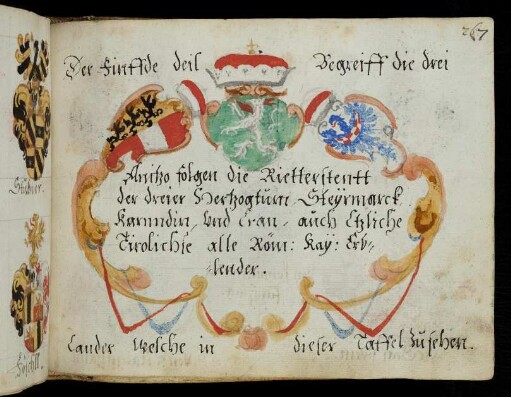 267
Der Finffde deil Begreiff die drei
Anitzo folgen die Rietterstentt
der dreier Hertzogtüm Steyrmarck
Kärnndtn, und Cran, auch Etzliche
Tirolichse alle Röm: Kay: Erb-
lender.
Lander Welche in dieser Taffel zu sehen.